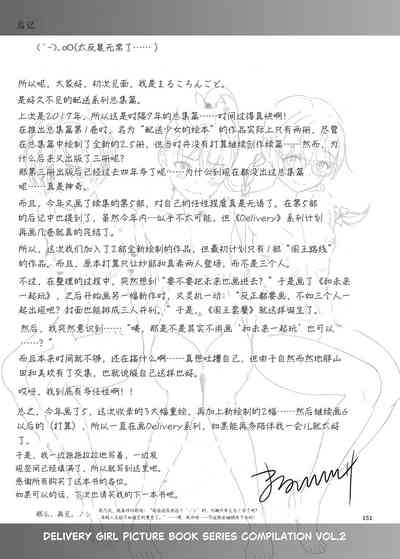 后记
(´-`).oO(太反复无常了……)
所以呢，大家好，初次见面，我是まるころんごと。
是好久不见的配送系列总集篇。
上次是2017年，所以这是时隔9年的总集篇……时间过得真快啊！
在推出总集篇第1卷时，名为“配送少女的绘本”的作品实际上只有两册，尽管
在总集篇中绘制了全新的2.5册，但当时并没有打算继续创作续篇……然而，为
什么后来又出版了三册呢？
那第三册出版后已经过去四年多了呢……为什么到现在都没出过总集篇
呢……真是神奇。
而且，今年又画了续集的第5部，对自己的任性程度真是无语了。在第5部
的后记中也提到了，虽然今年内一似乎不太可能，但《Delivery》系列计划
再画几卷就真的完结了。
所以，这次我们加入了2部全新绘制的作品，但最初计划只有1部“国王路线”
的作品。而且，原本打算只让纱和真希两人登场，而不是三个人。
不过，在整理的过程中，突然想到“要不要把未来也画进去？”于是画了《和未来
一起玩》，之后开始画另一幅新作时，又灵机一动：“反正都要画，不如三个人一
起出现吧？封面也能排成三人并列，”于是，《国王套餐》就这样诞生了。
然后，我突然意识到……“咦，那是不是其实不用画‘和未来一起玩’也可以
……？”
而且本来时间就不够，还在搞什么啊……真想吐槽自己，但由于自然而然地胖山
田和美玖有了交集，也就说服自己这样也好。
哎呀，我到底有多任性啊！！
总之，今年画了5，这次收录的3大幅重绘，再加上新绘制的2幅……然后继续画6
以后的（打算），所以一直在画Delivery系列，如果能再多陪伴我一会儿就太好
了。
于是，我一边拖拖拉拉地写着，一边发
现空间已经填满了，所以就写到这里吧。
感谢所有购买了这本书的各位。
如果可以的话，下次也请买我的下一本书吧。
那么，再见。ノシ
151
DELIVERY GIRL PICTURE BOOK SERIES COMPILATION VOL.2